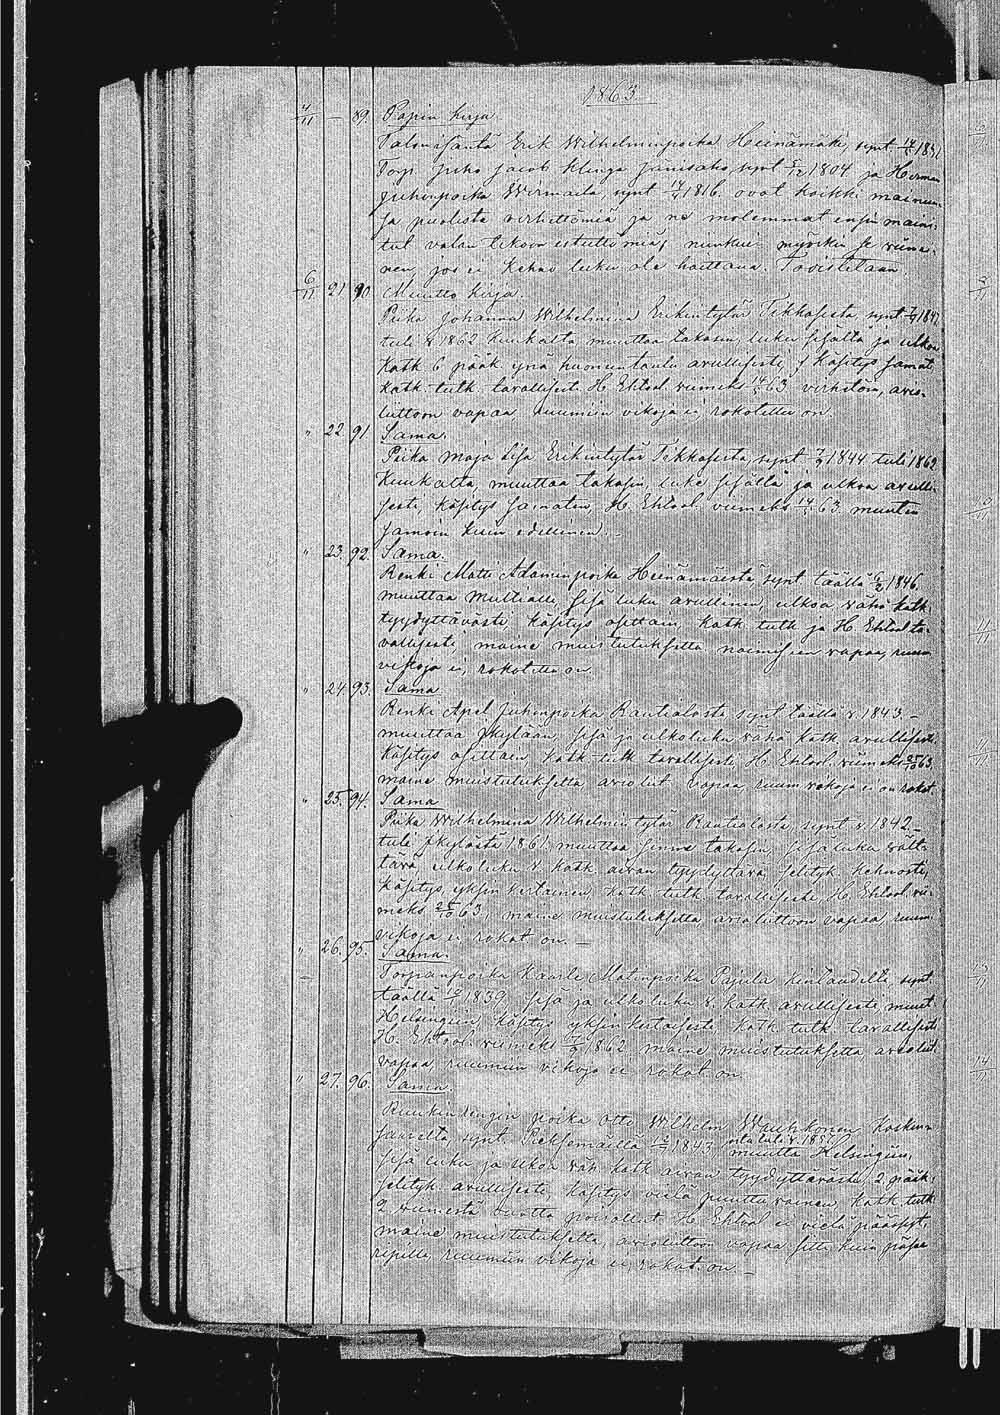 1863
4/11 — 89. Papin kirja.
Talonisäntä Erik Wilhelminpoika Heinämäki, synt.
Torp. Juho Jacob Klinga Jänisaho, synt 1804 ja Herman
Juhonpoika Wirmaila, synt 1816 ovat kaikki mainen-
sa puolesta virhettömiä ja ne molemmat ensin maini-
tut valan tekoon esteettömiä, niinkuin myöskin se viimei-
nen, jos ei kehno luku ole haittana. Todistetaan
6/11 21 90 Muutto kirja.
Piika Johanna Wilhelmina Erikintytär Tikkasesta, synt
tuli v. 1862 Kuukalta muuttaa takasin, luku sisältä ja ulkoa
katk 6 pääk ynä huoneentaulu avullisesti, Käsitys samat
katk tutk tavallisest. H. Ehtool viimeks 63 virhetöin, avio-
liittoon vapaa ruumiin vikoja ei, rokotettu on.
" 22 91 Sama.
Piika Maja Lisa Erikintytär Tikkasesta, synt 1844 tuli 1862
Kuukalta, muuttaa takasin, luku sisältä ja ulkoa avulli-
sesti, käsitys samaten, H. Ehtool. viimeks 63 muuten
samoin kuin edellinen. —
" 23. 92. Sama.
Renki Matti Adaminpoika Heinämäestä, synt täällä 1846,
muuttaa Multialle, Sisä luku avullinen, ulkoa vähä katk.
tyydyttävästi käsitys osittain, Katk tutk ja H. Ehtool ta-
vallisesti maine muistutuksetta naimiseen vapaa, ruum
vikoja ei, rokotettu on.
" 24. 93. Sama
Renki Apel Juhonpoika Rautialasta synt täällä v. 1843. —
muuttaa Jkylään, sisä ja ulkoluku vähä katk avullisesti
käsitys osittain, katk tutk tavallisesti H. Ehtool. viimeks 63,
maine muistutuksetta avioliit. vapaa ruum vikoja ei on rokot.
" 25. 94. Sama
Piika Wilhelmina Wilhelmintytär Rautialasta synt v. 1842 —
tuli Jkylästä 1861, muuttaa sinne takasin, sisäluku vält-
tävä, ulkoluku v. katk. aivan tyydyttävä, selityk. kehnosti,
käsitys yksin kertainen, katk tutk tavallisesti, H. Ehtool vii-
meks 63, maine muistutuksetta avioliittoon vapaa ruum
vikoja ei rokot on. —
" 26. 95. Sama.
Torpanpoika Kaarle Matinpoika Pajula synt.
täällä 1839, sisä ja ulkoluku v. katk avullisesti, muut
Helsingiin, käsitys yksinkertaisesti, katk tutk tavallisesti
H. Ehtool. viimeks 1862 maine muistutuksetta avioliit.
vapaa, ruumiin vikoja ei rokot on.
" 27. 96. Sama
Ruukinrengin poika Otto Wilhelm Wauhkonen Kosken-
saarelta, synt. Pieksämällä 1843 tuli v. 1857 muutta Helsingiin,
sisä luku ja ulkoa väh. katk aivan tyydyttävästi, 2 pääk.
selityk avullisesti, käsitys vielä puuttuvainen, katk tutk
2 viimestä vuotta poisollut H. Ehtool ei vielä päässyt,
maine muistutuksetta, avioliittoon vapaa sitte kuin pääsee
ripille, ruumiin vikoja ei, rokot. on. —